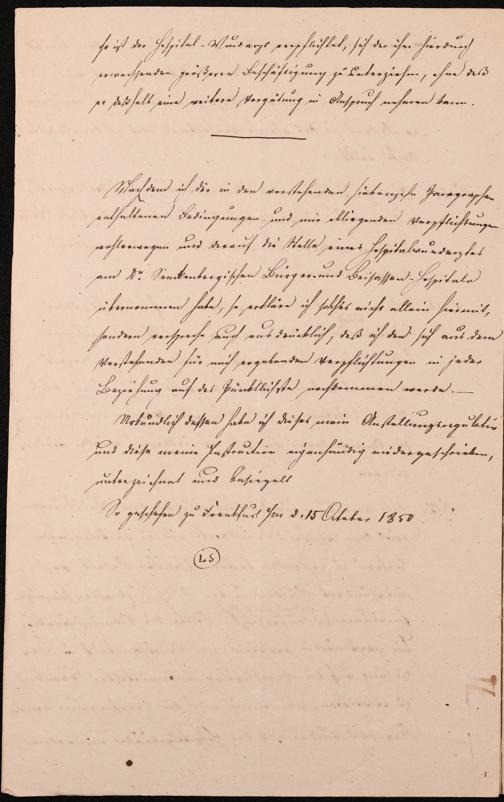 so ist der Hospital-Wundarzt verpflichtet, sich der ihm hierdurch
erwachsenden größeren Beschäftigung zu unterziehen, ohne daß
er deßhalb eine weitere Vergütung in Anspruch nehmen kann.
Nachdem ich die in den vorstehenden siebenzehn Paragraphen
enthaltenen Bedingungen und mir obliegenden Verpflichtungen
wohlerwogen und darauf die Stelle eines Hospitalwundarztes
am Dr. Senckenbergischen Bürger und Beisassen-Hospitale
übernommen habe, so erkläre ich solches nicht allein hiermit,
sondern verspreche auch ausdrücklich, daß ich den sich aus dem
Vorstehenden für mich ergebenden Verpflichtungen in jeder
Beziehung auf das Pünktlichste nachkommen werde.—
Urkundlich dessen habe ich dieses mein Anstellungsregulativ
und diese meine Instruction eigenhändig niedergeschrieben,
unterzeichnet und besiegelt
So geschehen zu Frankfurt /m d. 15 October 1850
LS